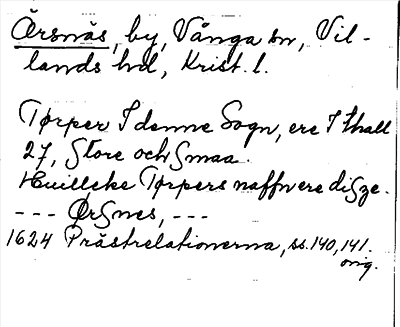 Örsnäs, by, Vånga sn, Vil-
lands hd, Krist. l.
Tørper I denne Sogn, ere I thall
27, Store och Smaa.
Huillcke Tørpers naffn ere disze.
--- ØrSnes, ---
1624 Prästrelationerna, ss. 140, 141.
orig.